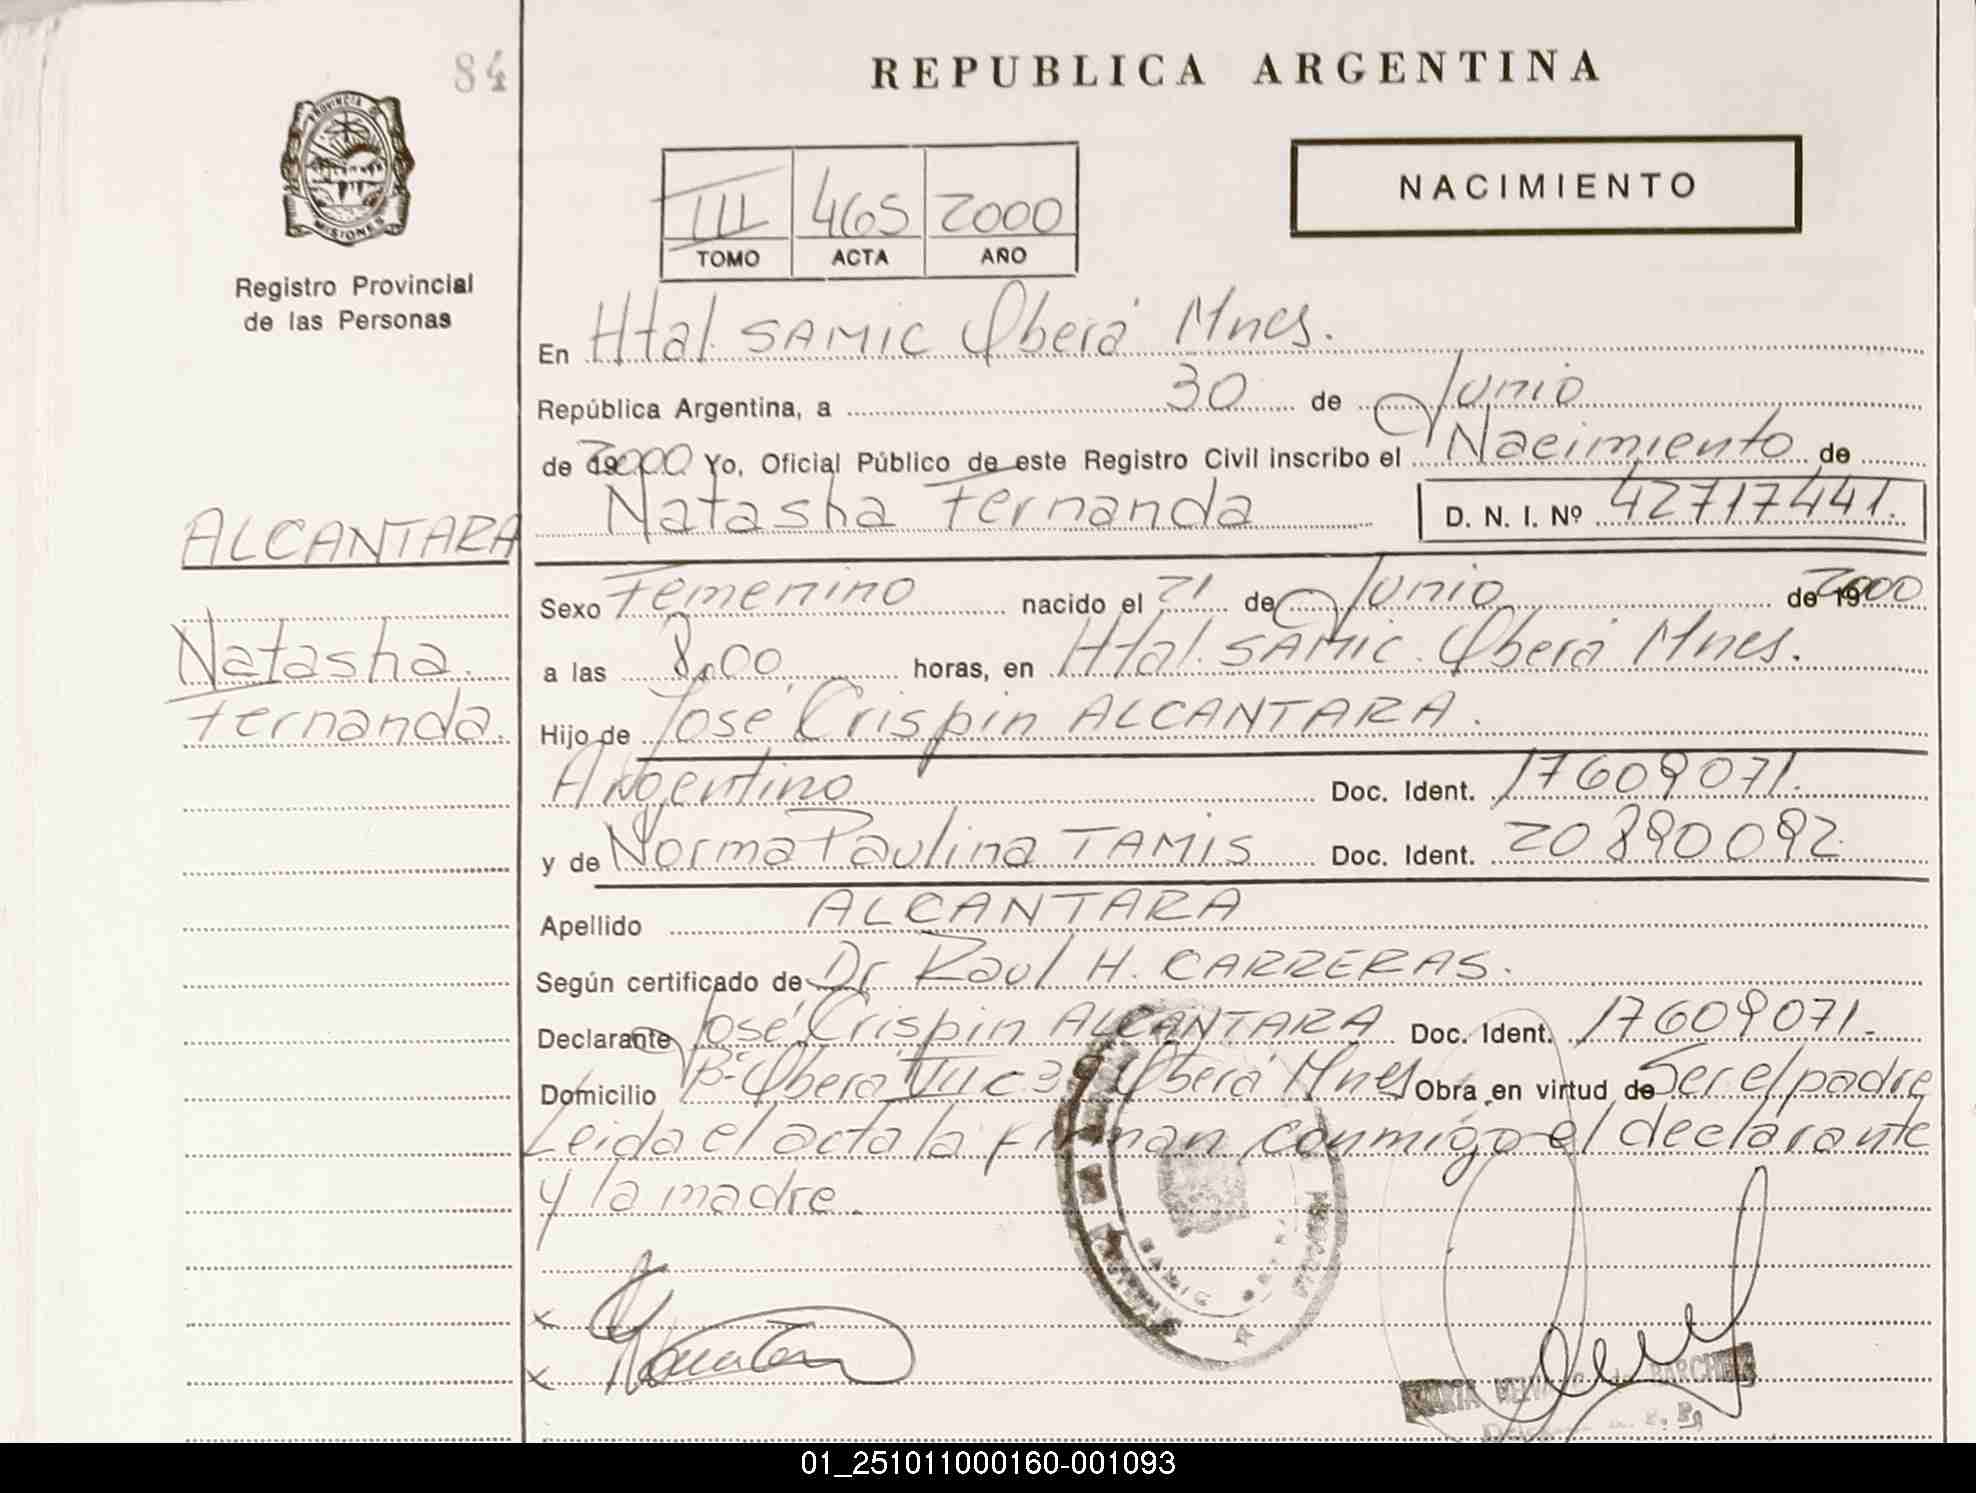 84
REPUBLICA ARGENTINA
PROVINCIA DE
MISIONES
Registro Provincial
de las Personas
III 465 2000
TOMO ACTA AÑO
NACIMIENTO
En Htal. SAMIC Oberá Mnes.
República Argentina, a 30 de Junio
de 2000 Yo, Oficial Público de este Registro Civil inscribo el Nacimiento de
Natasha Fernanda D. N. I. Nº 42717441.
ALCANTARA
Natasha
Fernanda.
Sexo Femenino nacido el 21 de Junio de 2000
a las 8,00 horas, en Htal. SAMIC. Oberá Mnes.
Hijo de José Crispín ALCANTARA.
Argentino Doc. Ident. 17609071.
y de Norma Paulina TAMIS Doc. Ident. 20890092.
Apellido ALCANTARA
Según certificado de Dr. Raul H. CARRERAS.
Declarante José Crispín ALCANTARA Doc. Ident. 17609071.
Domicilio Bº Oberá VII c 39 Oberá Mnes Obra en virtud de Ser el padre
Leida el acta la firman conmigo el declarante
y la madre.
SAMIC
BARCHUK
01_251011000160-001093